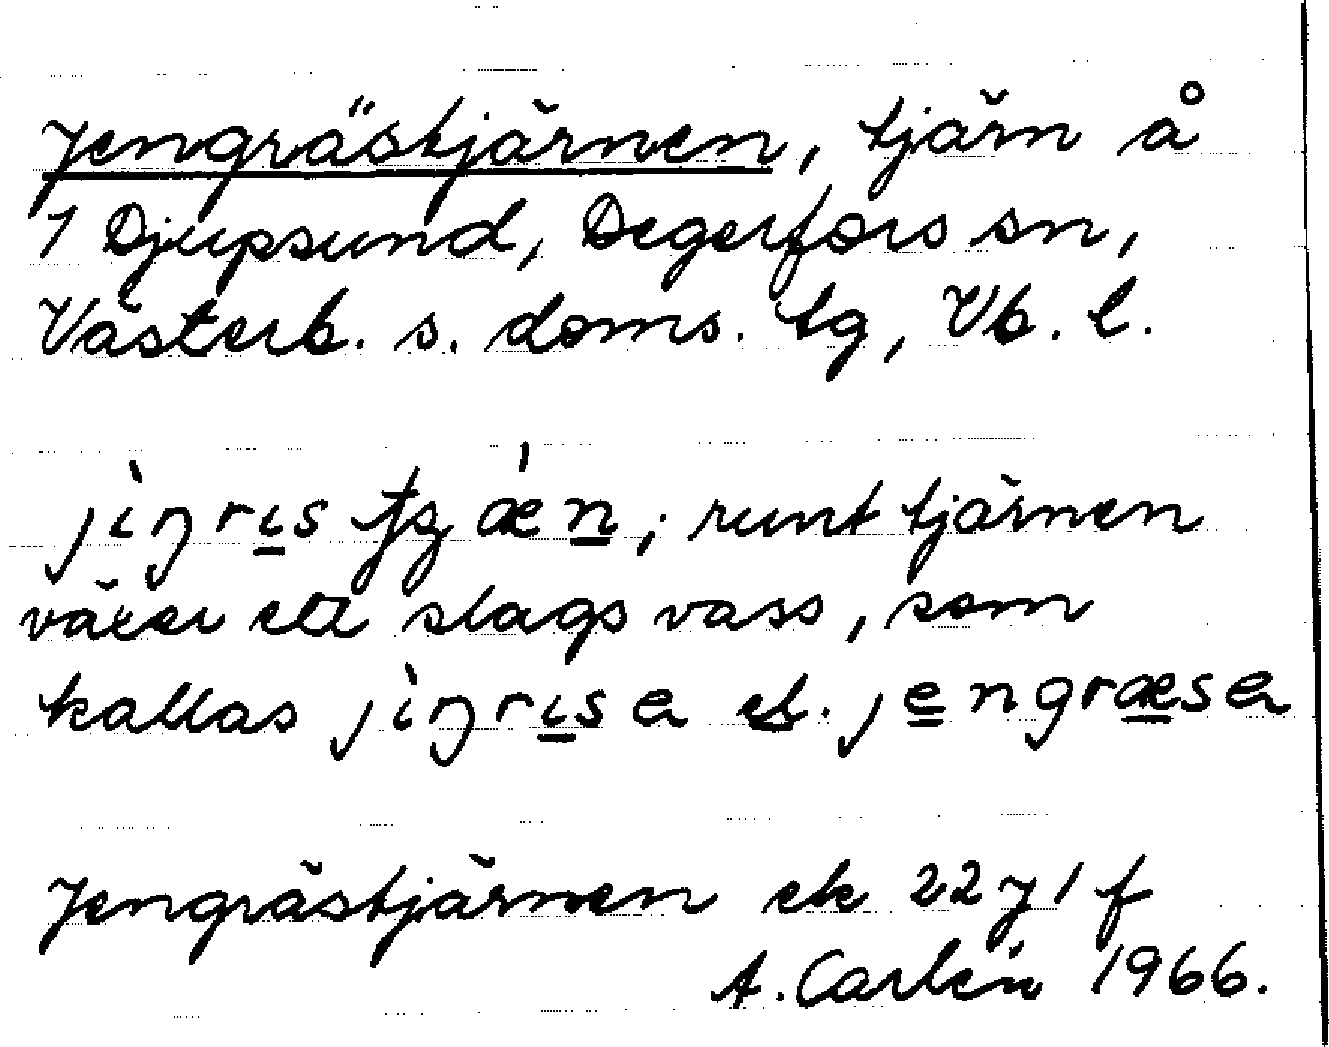 Jengrästjärnen, tjärn å
1 Djupsund, Degerfors sn,
Västerb. s. doms. tg, Vb. l.
runt tjärnen
växer ett slags vass, som
kallas jìŋrɩ̱sa el. je̳ngræ̱sa
Jengrästjärnen ek 22 j 1 f
A. Carlén 1966.